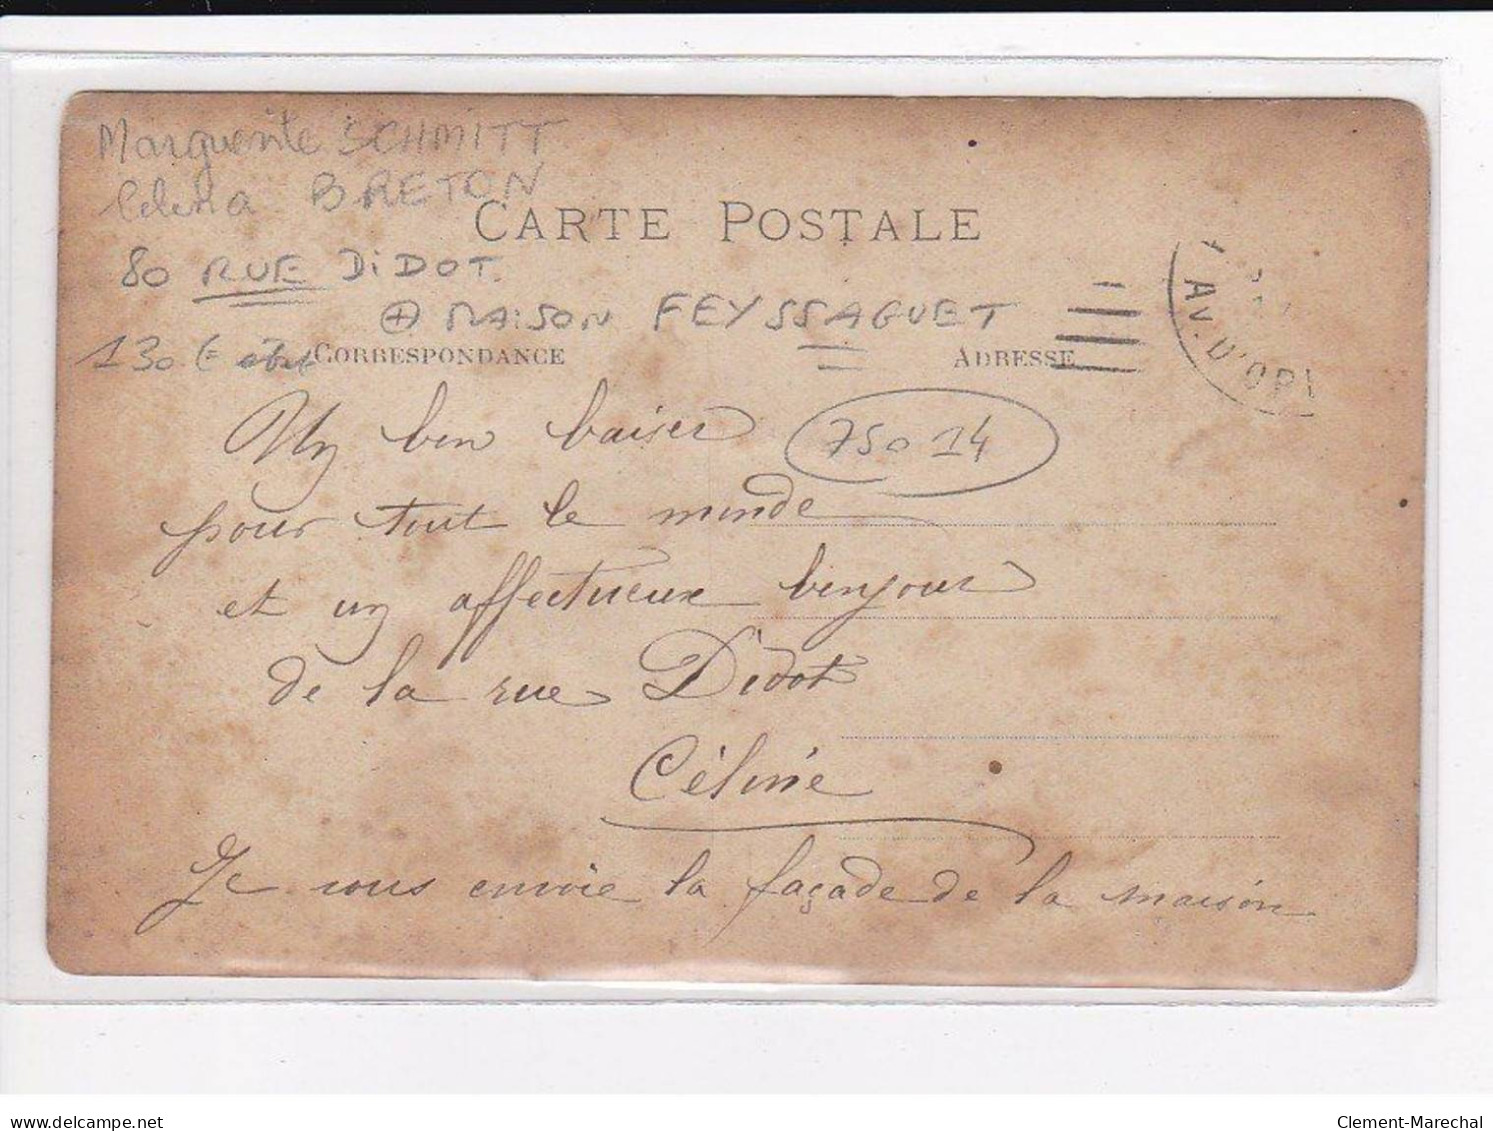 Marguerite SCHMITT
Célina BRETON
CARTE POSTALE
80 RUE DiDOT.
⊕ MAiSON FEYSSAGUET
130 € état CORRESPONDANCE
ADRESSE
AV. D'ORL
Un bon baiser
75014
pour tout le monde
et un affectueux bonjour
de la rue Didot
Céline
Je vous envoie la façade de la maison
delcampe.net
Clement-Marechal